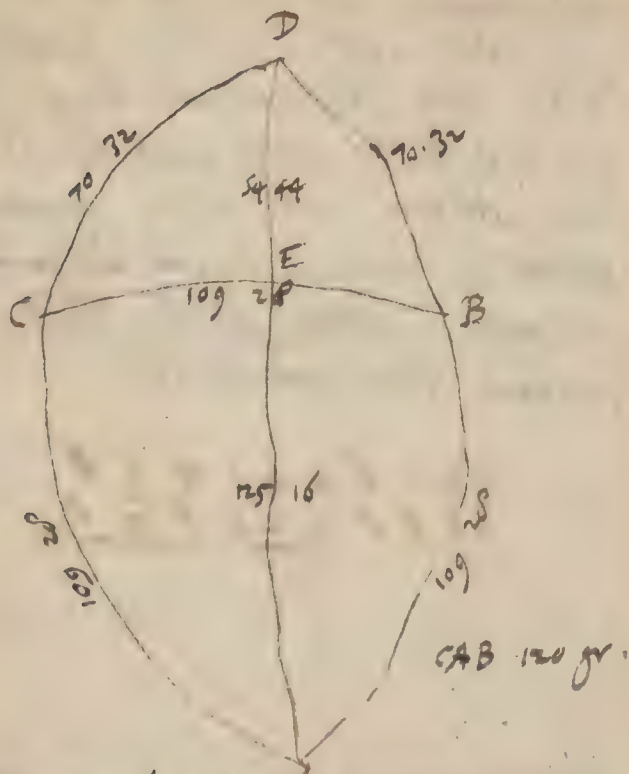 D
70 32
70.32
54 44
E
C
109 28
B
125 16
28
109
28
109
CAB 120 gr.